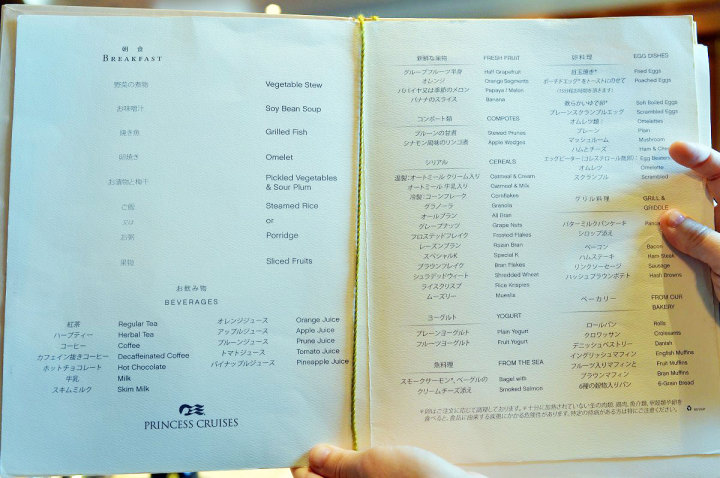 朝 食
BREAKFAST
野菜の煮物 Vegetable Stew
お味噌汁 Soy Bean Soup
焼き魚 Grilled Fish
卵焼き Omelet
お漬物と梅干 Pickled Vegetables
& Sour Plum
ご飯 Steamed Rice
又は or
お粥 Porridge
果物 Sliced Fruits
お飲み物
BEVERAGES
紅茶 Regular Tea
ハーブティー Herbal Tea
コーヒー Coffee
カフェイン抜きコーヒー Decaffeinated Coffee
ホットチョコレート Hot Chocolate
牛乳 Milk
スキムミルク Skim Milk
オレンジジュース Orange Juice
アップルジュース Apple Juice
プルーンジュース Prune Juice
トマトジュース Tomato Juice
パイナップルジュース Pineapple Juice
PRINCESS CRUISES
新鮮な果物 FRESH FRUIT
グレープフルーツ半身 Half Grapefruit
オレンジ Orange Segments
パパイヤ又は季節のメロン Papaya / Melon
バナナのスライス Banana
コンポート類 COMPOTES
プルーンの甘煮 Stewed Prunes
シナモン風味のリンゴ煮 Apple Wedges
シリアル CEREALS
温製：オートミール クリーム入り Oatmeal & Cream
オートミール 牛乳入り Oatmeal & Milk
冷製：コーンフレーク Cornflakes
グラノーラ Granola
オールブラン All Bran
グレープナッツ Grape Nuts
フロステッドフレイク Frosted Flakes
レーズンブラン Raisin Bran
スペシャルK Special K
ブラウンフレイク Bran Flakes
シュラデッドウィート Shredded Wheat
ライスクリスプ Rice Krispies
ムーズリー Mueslix
ヨーグルト YOGURT
プレーンヨーグルト Plain Yogurt
フルーツヨーグルト Fruit Yogurt
魚料理 FROM THE SEA
スモークサーモン*、ベーグルの Bagel with
クリームチーズ添え Smoked Salmon
卵料理 EGG DISHES
目玉焼き* Fried Eggs
ポーチドエッグ*をトーストにのせて Poached Eggs
柔らかいゆで卵* Soft Boiled Eggs
プレーンスクランブルエッグ Scrambled Eggs
オムレツ類： Omelettes
プレーン Plain
マッシュルーム Mushroom
ハムとチーズ Ham &
エッグビーター Egg Beaters
オムレツ Omelette
スクランブル Scrambled
グリル料理 GRILL &
GRIDDLE
バターミルクパンケーキ
シロップ添え
ベーコン Bacon
ハムステーキ Ham Steak
リンクソーセージ Sausage
ハッシュブラウンポテト Hash Browns
ベーカリー FROM OUR
BAKERY
ロールパン Rolls
クロワッサン Croissants
デニッシュペストリー Danish
イングリッシュマフィン English Muffins
フルーツ入りマフィンと Fruit Muffins
ブラウンマフィン Bran Muffins
6種の穀物入りパン 6-Grain Bread